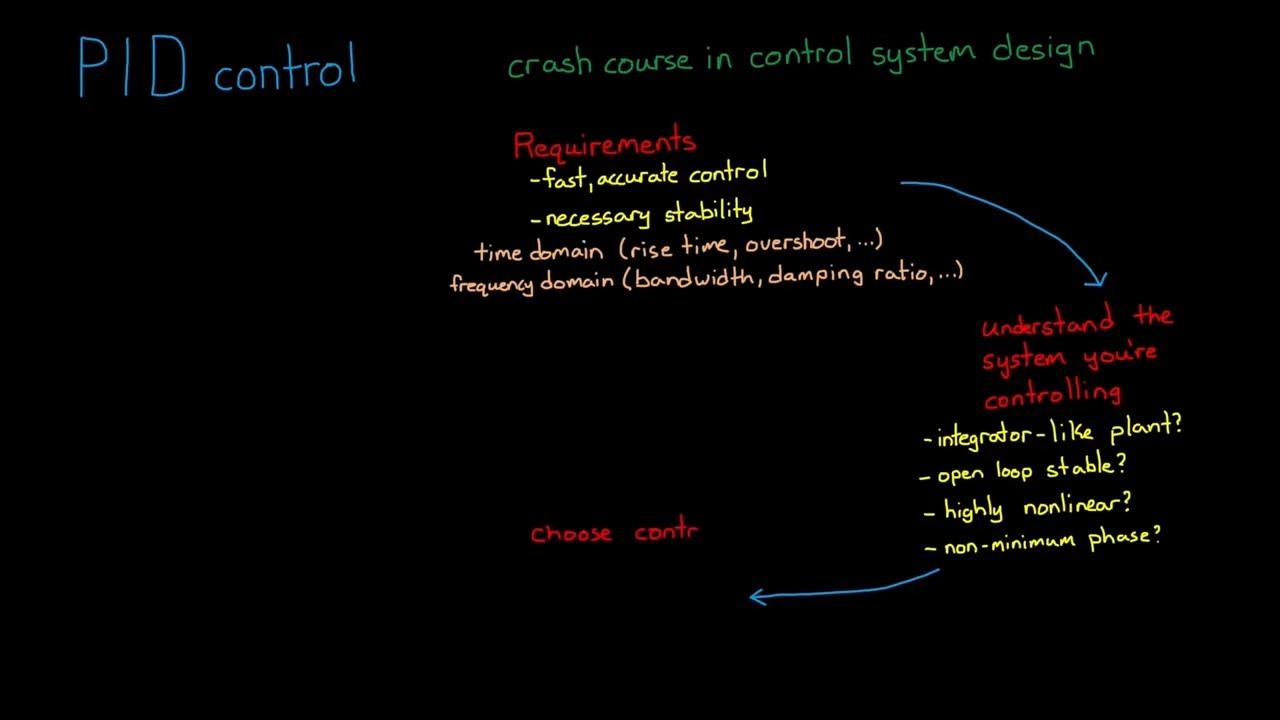 PID control
crash course in control system design
Requirements
-fast, accurate control
-necessary stability
time domain (rise time, overshoot, ...)
frequency domain (bandwidth, damping ratio, ...)
understand the
system you're
controlling
- integrator-like plant?
- open loop stable?
- highly nonlinear?
- non-minimum phase?
choose contr